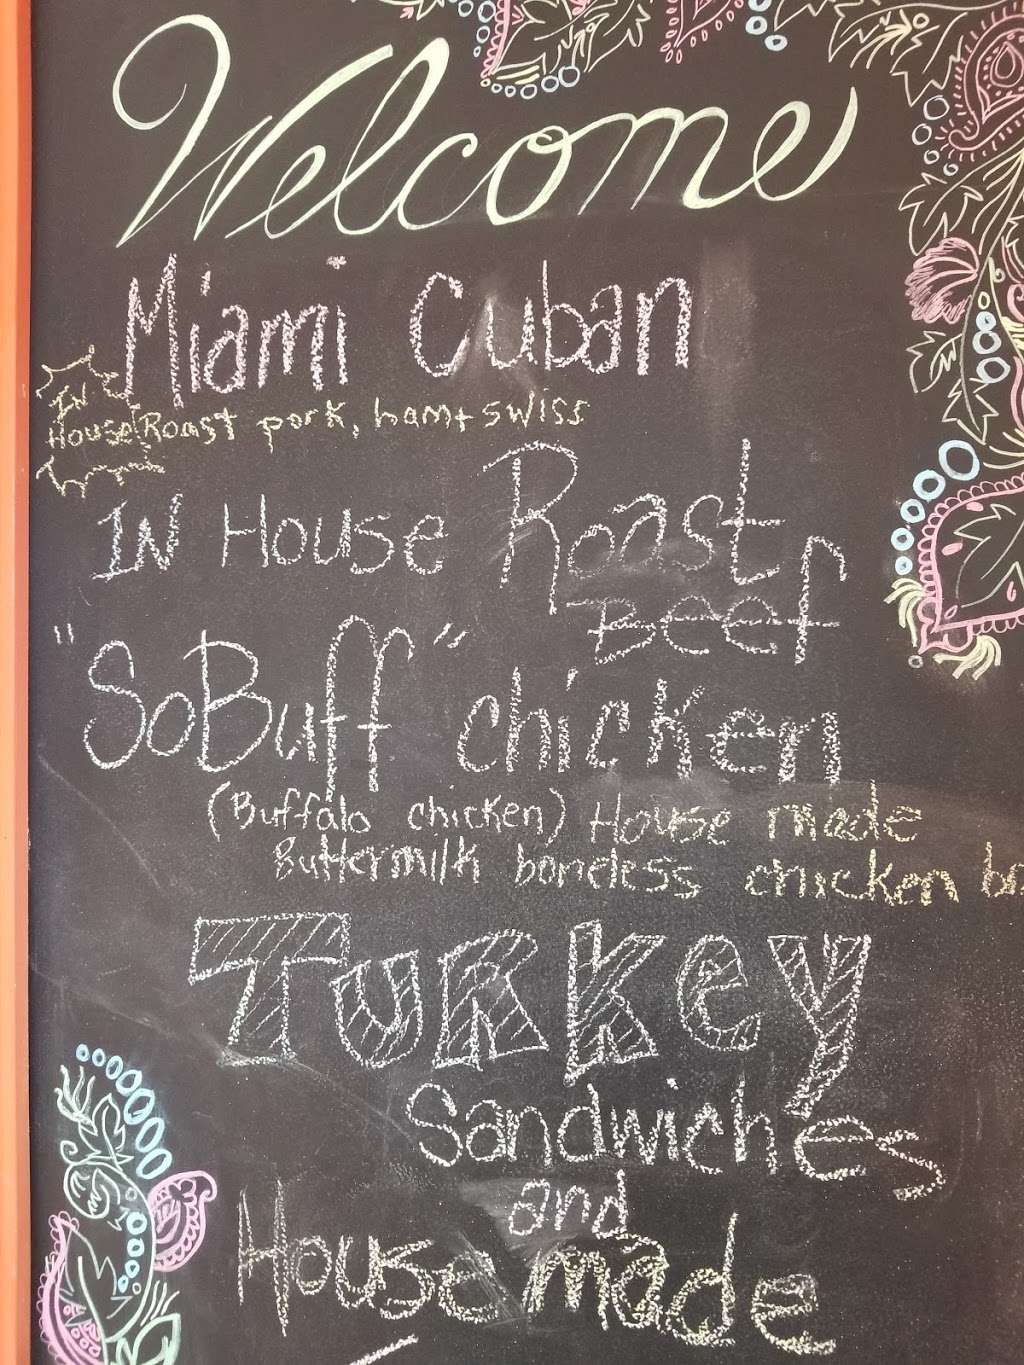 Welcome
Miami Cuban
IN
House Roast pork, ham + swiss
IN House Roast
Beef
"SoBuff" chicken
(Buffalo chicken) House made
Buttermilk boneless chicken
Turkey
Sandwiches
and
House made